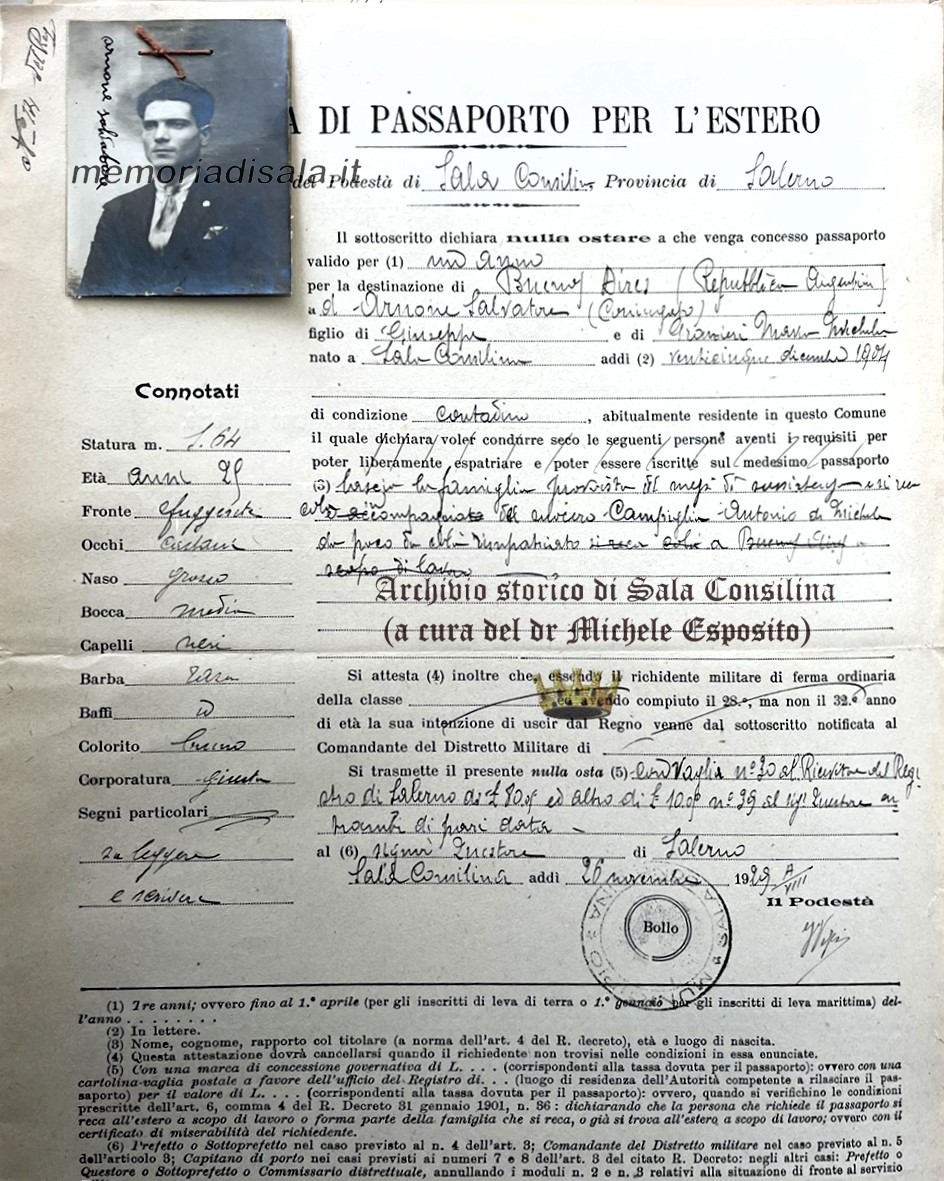 arnone salvatore
A DI PASSAPORTO PER L'ESTERO
memoriadisala.it
del Podestà di Sala Consilina Provincia di Salerno
Il sottoscritto dichiara nulla ostare a che venga concesso passaporto
valido per (1) un anno
per la destinazione di Buenos Aires (Repubblica Argentina)
a d. Arnone Salvatore (Coniugato)
figlio di Giuseppe e di Maria Michela
nato a Sala Consilina addì (2) venticinque dicembre 1904
Connotati
di condizione contadino, abitualmente residente in questo Comune
il quale dichiara voler condurre seco le seguenti persone aventi i requisiti per
poter liberamente espatriare e poter essere iscritte sul medesimo passaporto
(3) lascia la famiglia provvista di mezzi di
accompagnato del suocero Campiglia Antonio di Michele
da poco da colà rimpatriato si reca colà a Buenos Aires a
scopo di lavoro
Statura m. 1.64
Età anni 25
Fronte sfuggente
Occhi castani
Naso grosso
Bocca media
Capelli neri
Barba rasa
Baffi id
Colorito bruno
Corporatura giusta
Segni particolari
sa leggere
e scrivere
Archivio storico di Sala Consilina
(a cura del dr Michele Esposito)
Si attesta (4) inoltre che, essendo il richidente militare di ferma ordinaria
della classe ed avendo compiuto il 28.º, ma non il 32.º anno
di età la sua intenzione di uscir dal Regno venne dal sottoscritto notificata al
Comandante del Distretto Militare di
Si trasmette il presente nulla osta (5) con Vaglia nº 30 al Ricevitore del Regi-
stro di Salerno di £ 80,00 ed altro di £ 10,00 nº 39 al sigr Questore en
trambi di pari data
al (6) signor Questore di Salerno
Sala Consilina addì 26 novembre 1929 A VIII
Il Podestà
Bollo
(1) Tre anni; ovvero fino al 1.º aprile (per gli inscritti di leva di terra o 1.º gennaio per gli inscritti di leva marittima) del-
l'anno . . . . . . . .
(2) In lettere.
(3) Nome, cognome, rapporto col titolare (a norma dell'art. 4 del R. decreto), età e luogo di nascita.
(4) Questa attestazione dovrà cancellarsi quando il richiedente non trovisi nelle condizioni in essa enunciate.
(5) Con una marca di concessione governativa di L. . . . (corrispondenti alla tassa dovuta per il passaporto): ovvero con una
cartolina-vaglia postale a favore dell'ufficio del Registro di. . . (luogo di residenza dell'Autorità competente a rilasciare il pas-
saporto) per il valore di L. . . . (corrispondenti alla tassa dovuta per il passaporto): ovvero, quando si verifichino le condizioni
prescritte dell'art. 6, comma 4 del R. Decreto 31 gennaio 1901, n. 36: dichiarando che la persona che richiede il passaporto si
reca all'estero a scopo di lavoro o forma parte della famiglia che si reca, o già si trova all'estero a scopo di lavoro; ovvero con il
certificato di miserabilità del richiedente.
(6) Prefetto o Sottoprefetto nel caso previsto al n. 4 dell'art. 3; Comandante del Distretto militare nel caso previsto al n. 5
dell'articolo 3; Capitano di porto nei casi previsti ai numeri 7 e 8 dell'art. 3 del citato R. Decreto: negli altri casi: Prefetto o
Questore o Sottoprefetto o Commissario distrettuale, annullando i moduli n. 2 e n. 3 relativi alla situazione di fronte al servizio